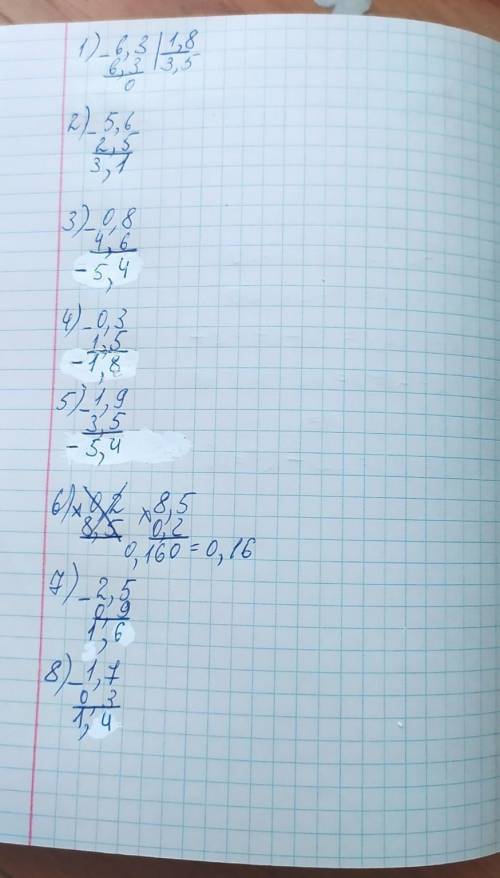 1) - 6,3 | 1,8
6,3 3,5
0
2) - 5,6
2,5
3,1
3) - 0,8
4,6
- 5,4
4) - 0,3
1,5
- 1,8
5) - 1,9
3,5
- 5,4
6) × 0,2 × 8,5
8,5 0,2
0,160 = 0,16
7) - 2,5
0,9
1,6
8) - 1,7
0,3
1,4